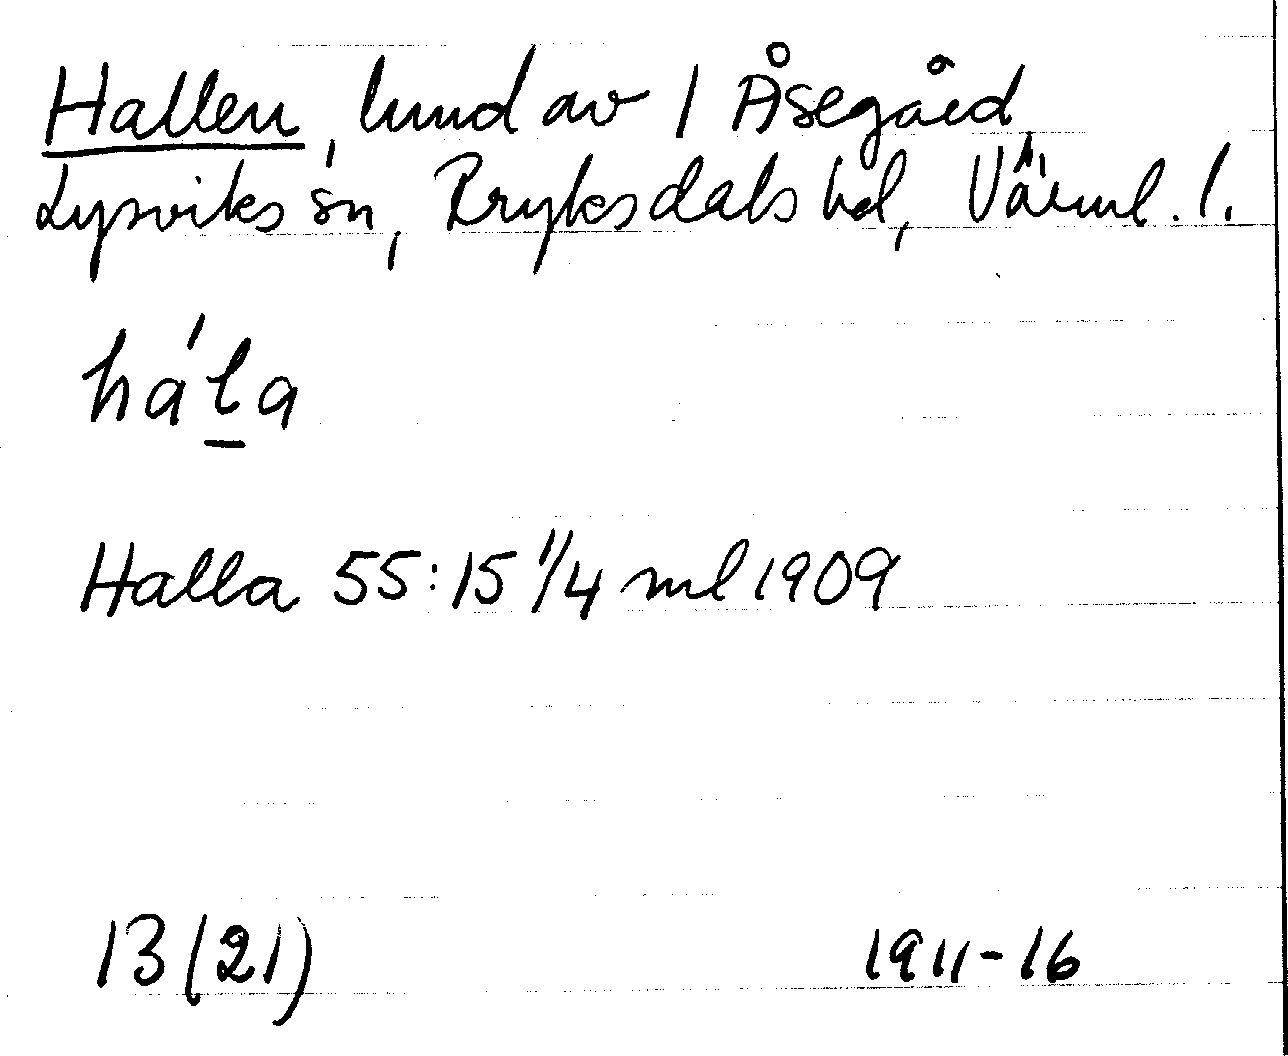 Hallen, hmd av 1 Åsegård,
Lysviks sn, Fryksdals hd, Värml. l.
há'l̲a
Halla 55:15 1/4 ml 1909
13(21) 1911-16